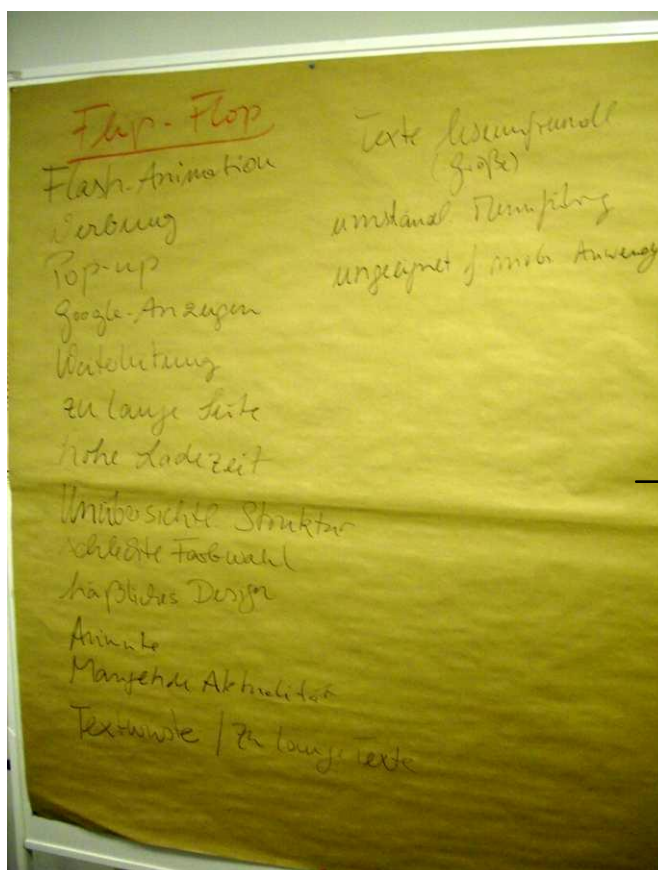 Flip-Flop
Flash-Animation
Werbung
Pop-up
Google-Anzeigen
Weiterleitung
zu lange Seite
hohe Ladezeit
Unübersichtl Struktur
schlechte Farbwahl
häßliches Design
Mangelnde Aktualität
Textwüste / zu lange Texte
Texte leseunfreundl
(Größe)
umständl. Menuführung
ungeeignet f mobi Anwendg